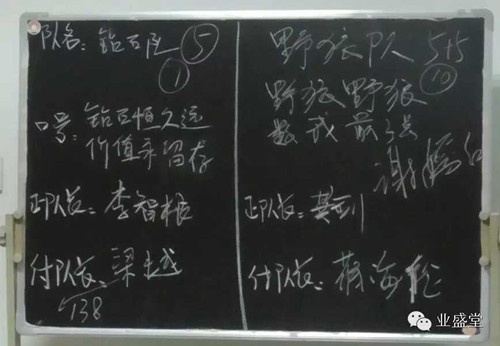 队名：钻石队 5
1
口号：钻石恒久远
价值永留存
正队长：李智根
付队长：梁越
738
野狼队 5+5
10
野狼野狼
数我最强
正队长：
付队长：蔡海
业盛堂